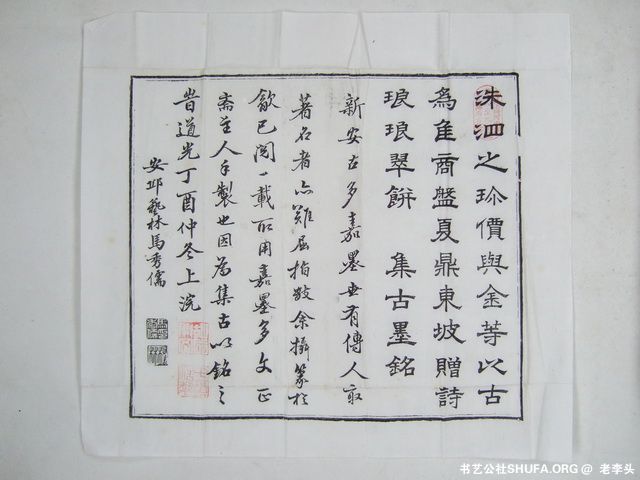 洙泗之珍價與金等以古
為隹商盤夏鼎東坡贈詩
琅琅翠餅 集古墨銘
新安古多嘉墨世有傳人最
著名者亦難屈指數余攝篆於
歙已閱一載所用嘉墨多文正
齋主人手製也因為集古以銘之
旹道光丁酉仲冬上浣
安邱藝林馬秀儒
书艺公社SHUFA.ORG @ 老李头